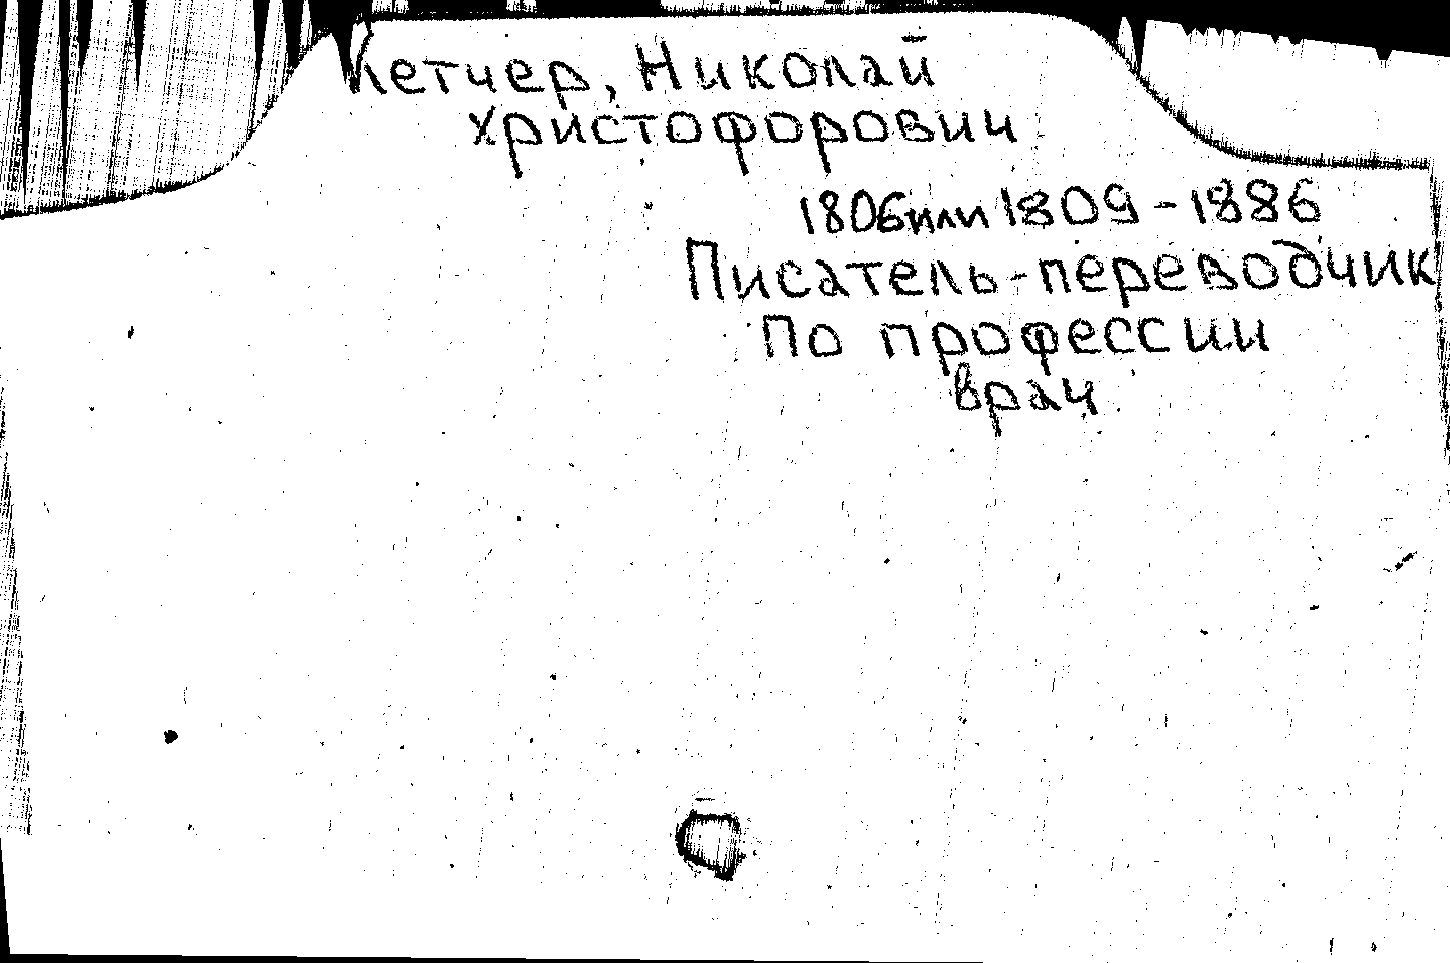 Кетчер, Николай
Христофорович
1806 или 1809-1886
Писатель-переводчик
По профессии
врач